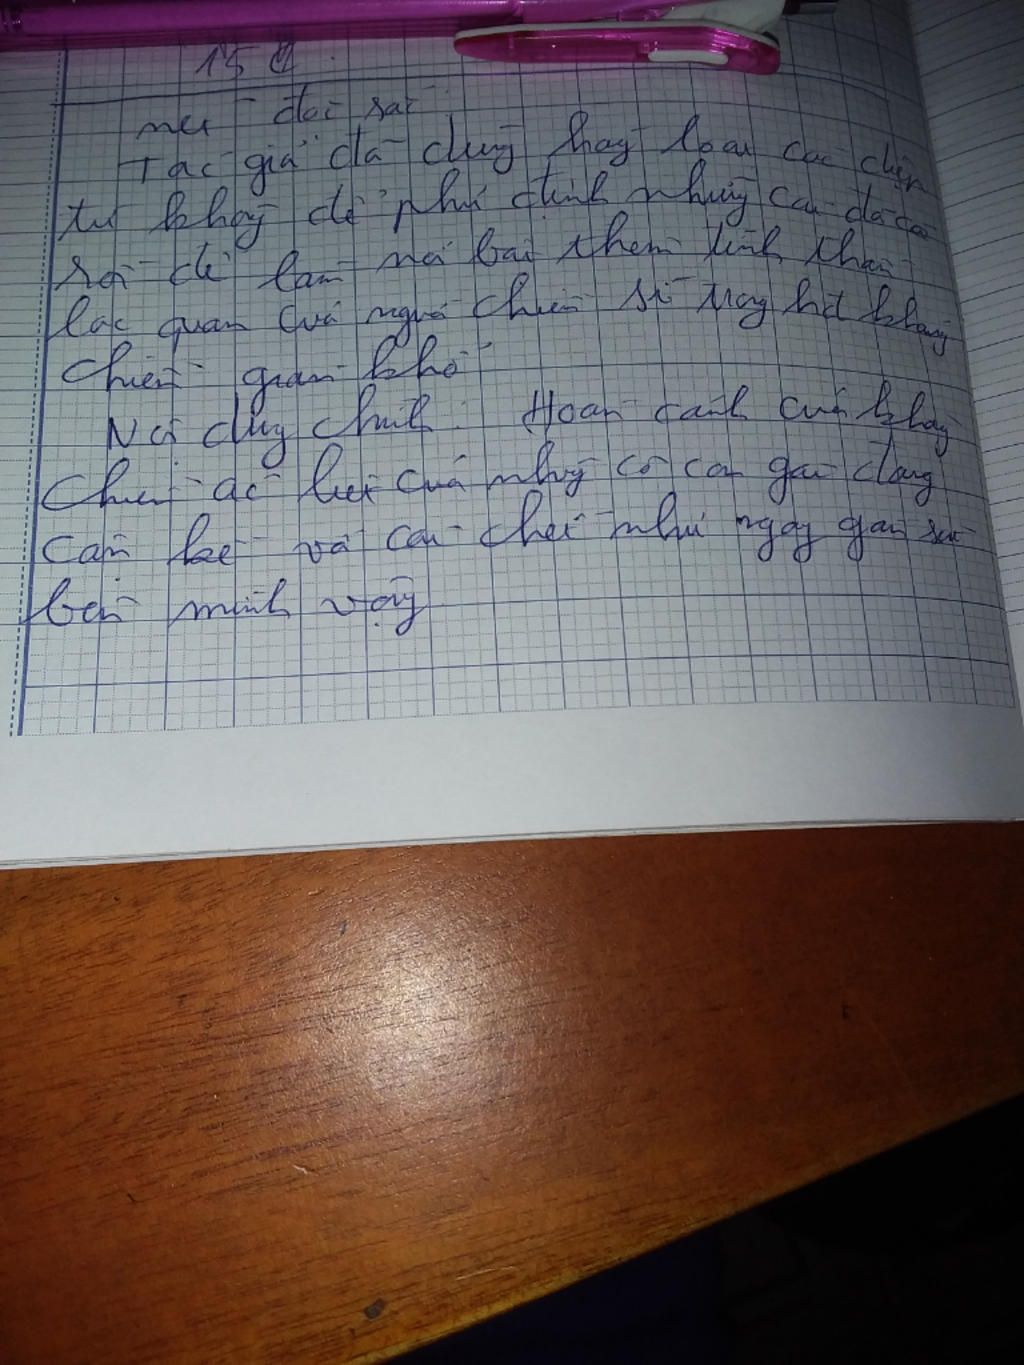 Tác giả đã dùng hàng loạt các điệp
từ không để phủ định những cái đã có
rồi để làm nổi bật thêm tinh thần
lạc quan của người chiến sĩ trong thời kháng
chiến gian khổ
Nội dung chính: Hoàn cảnh của kháng
chiến ác liệt của những cô con gái đang
cận kề với cái chết như ngay gần sát
bên mình vậy